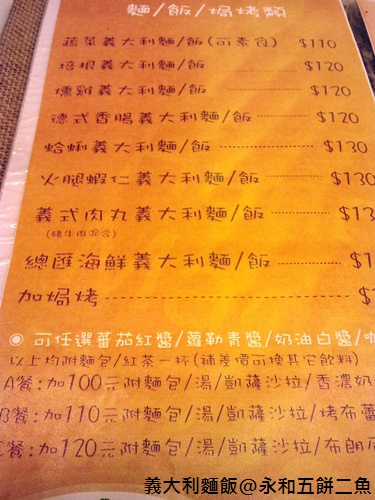 麵/飯/焗烤類
蔬菜義大利麵/飯(可素食) $110
培根義大利麵/飯 $120
燻雞義大利麵/飯 $120
德式香腸義大利麵/飯 $120
蛤蜊義大利麵/飯 $130
火腿蝦仁義大利麵/飯 $130
義式肉丸義大利麵/飯 $13
(豬牛肉混合)
總匯海鮮義大利麵/飯 $1
加焗烤 $
◉ 可任選蕃茄紅醬/蘿勒青醬/奶油白醬/
以上均附麵包/紅茶一杯(補差價可換其它飲料)
A餐:加100元附麵包/湯/凱薩沙拉/香濃奶
B餐:加110元附麵包/湯/凱薩沙拉/烤布蕾
C餐:加120元附麵包/湯/凱薩沙拉/布朗
義大利麵飯@永和五餅二魚